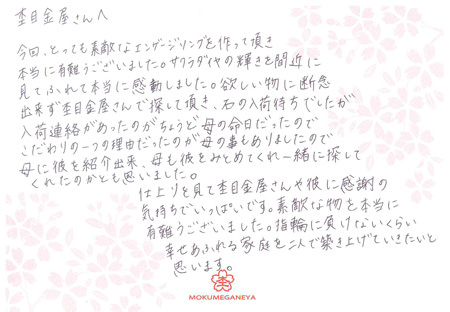 杢目金屋さんへ
今回、とっても素敵なエンゲージリングを作って頂き
本当に有難うございました。サクラダイヤの輝きを間近に
見てふれて本当に感動しました。欲しい物に断念
出来ず杢目金屋さんで探して頂き、石の入荷待ちでしたが
入荷連絡があったのがちょうど母の命日だったので
こだわりの一つの理由だったのが母の事もありましたので
母に彼を紹介出来、母も彼をみとめてくれ一緒に探して
くれたのかとも思いました。
仕上りを見て杢目金屋さんや彼に感謝の
気持ちでいっぱいです。素敵な物を本当に
有難うございました。指輪に負けないくらい
幸せあふれる家庭を二人で築き上げていきたいと
思います。
MOKUMEGANEYA